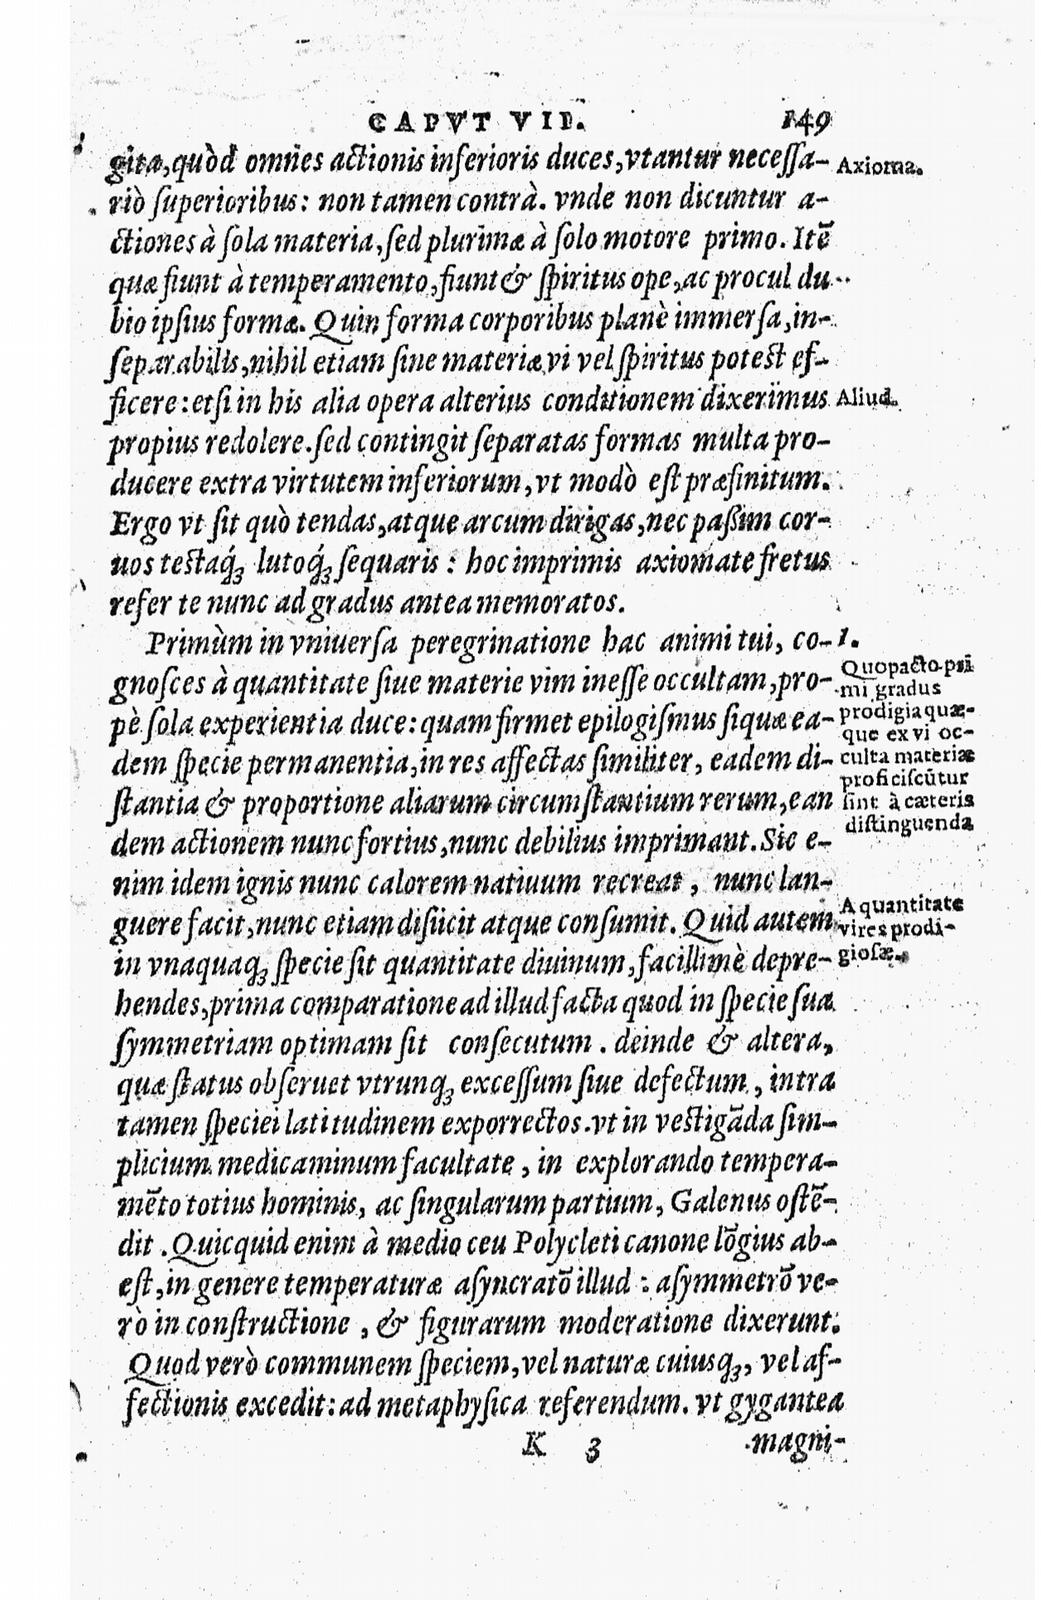 CAPVT VII. 149
gita, quòd omnes actionis inferioris duces, vtantur necessa-
riò superioribus: non tamen contrà. vnde non dicuntur a-
ctiones à sola materia, sed plurimæ à solo motore primo. Itē
quæ fiunt à temperamento, fiunt & spiritus ope, ac procul du-
bio ipsius formæ. Quin forma corporibus planè immersa, in-
separabilis, nihil etiam sine materiæ vi vel spiritus potest ef-
ficere: etsi in his alia opera alterius conditionem dixerimus
propius redolere. sed contingit separatas formas multa pro-
ducere extra virtutem inferiorum, vt modò est præfinitum.
Ergo vt sit quò tendas, atque arcum dirigas, nec paßim cor-
uos testaq́ꝫ lutoq́ꝫ sequaris: hoc imprimis axiomate fretus
refer te nunc ad gradus antea memoratos.
Primùm in vniuersa peregrinatione hac animi tui, co-
gnosces à quantitate siue materie vim inesse occultam, pro-
pè sola experientia duce: quam firmet epilogismus siquæ ea-
dem specie permanentia, in res affectas similiter, eadem di-
stantia & proportione aliarum circumstantium rerum, ean
dem actionem nunc fortius, nunc debilius imprimant. Sic e-
nim idem ignis nunc calorem natiuum recreat, nunc lan-
guere facit, nunc etiam disiicit atque consumit. Quid autem
in vnaquaqꝫ specie sit quantitate diuinum, facillimè depre-
hendes, prima comparatione ad illud facta quod in specie sua
symmetriam optimam sit consecutum. deinde & altera,
quæ status obseruet vtrunqꝫ excessum siue defectum, intra
tamen speciei latitudinem exporrectos. vt in vestigāda sim-
plicium medicaminum facultate, in explorando tempera-
mēto totius hominis, ac singularum partium, Galenus ostē-
dit. Quicquid enim à medio ceu Polycleti canone lōgius ab-
est, in genere temperaturæ asyncratō illud: asymmetrō ve-
rò in constructione, & figurarum moderatione dixerunt.
Quod verò communem speciem, vel naturæ cuiusqꝫ, vel af-
fectionis excedit: ad metaphysica referendum. vt gygantea
K 3 magni-
Axioma.
Aliud.
1.
Quo pacto pri
mi gradus
prodigia quæ-
que ex vi oc-
culta materiæ
proficiscūtur
sint à cæteris
distinguenda
A quantitate
vires prodi-
giosæ.